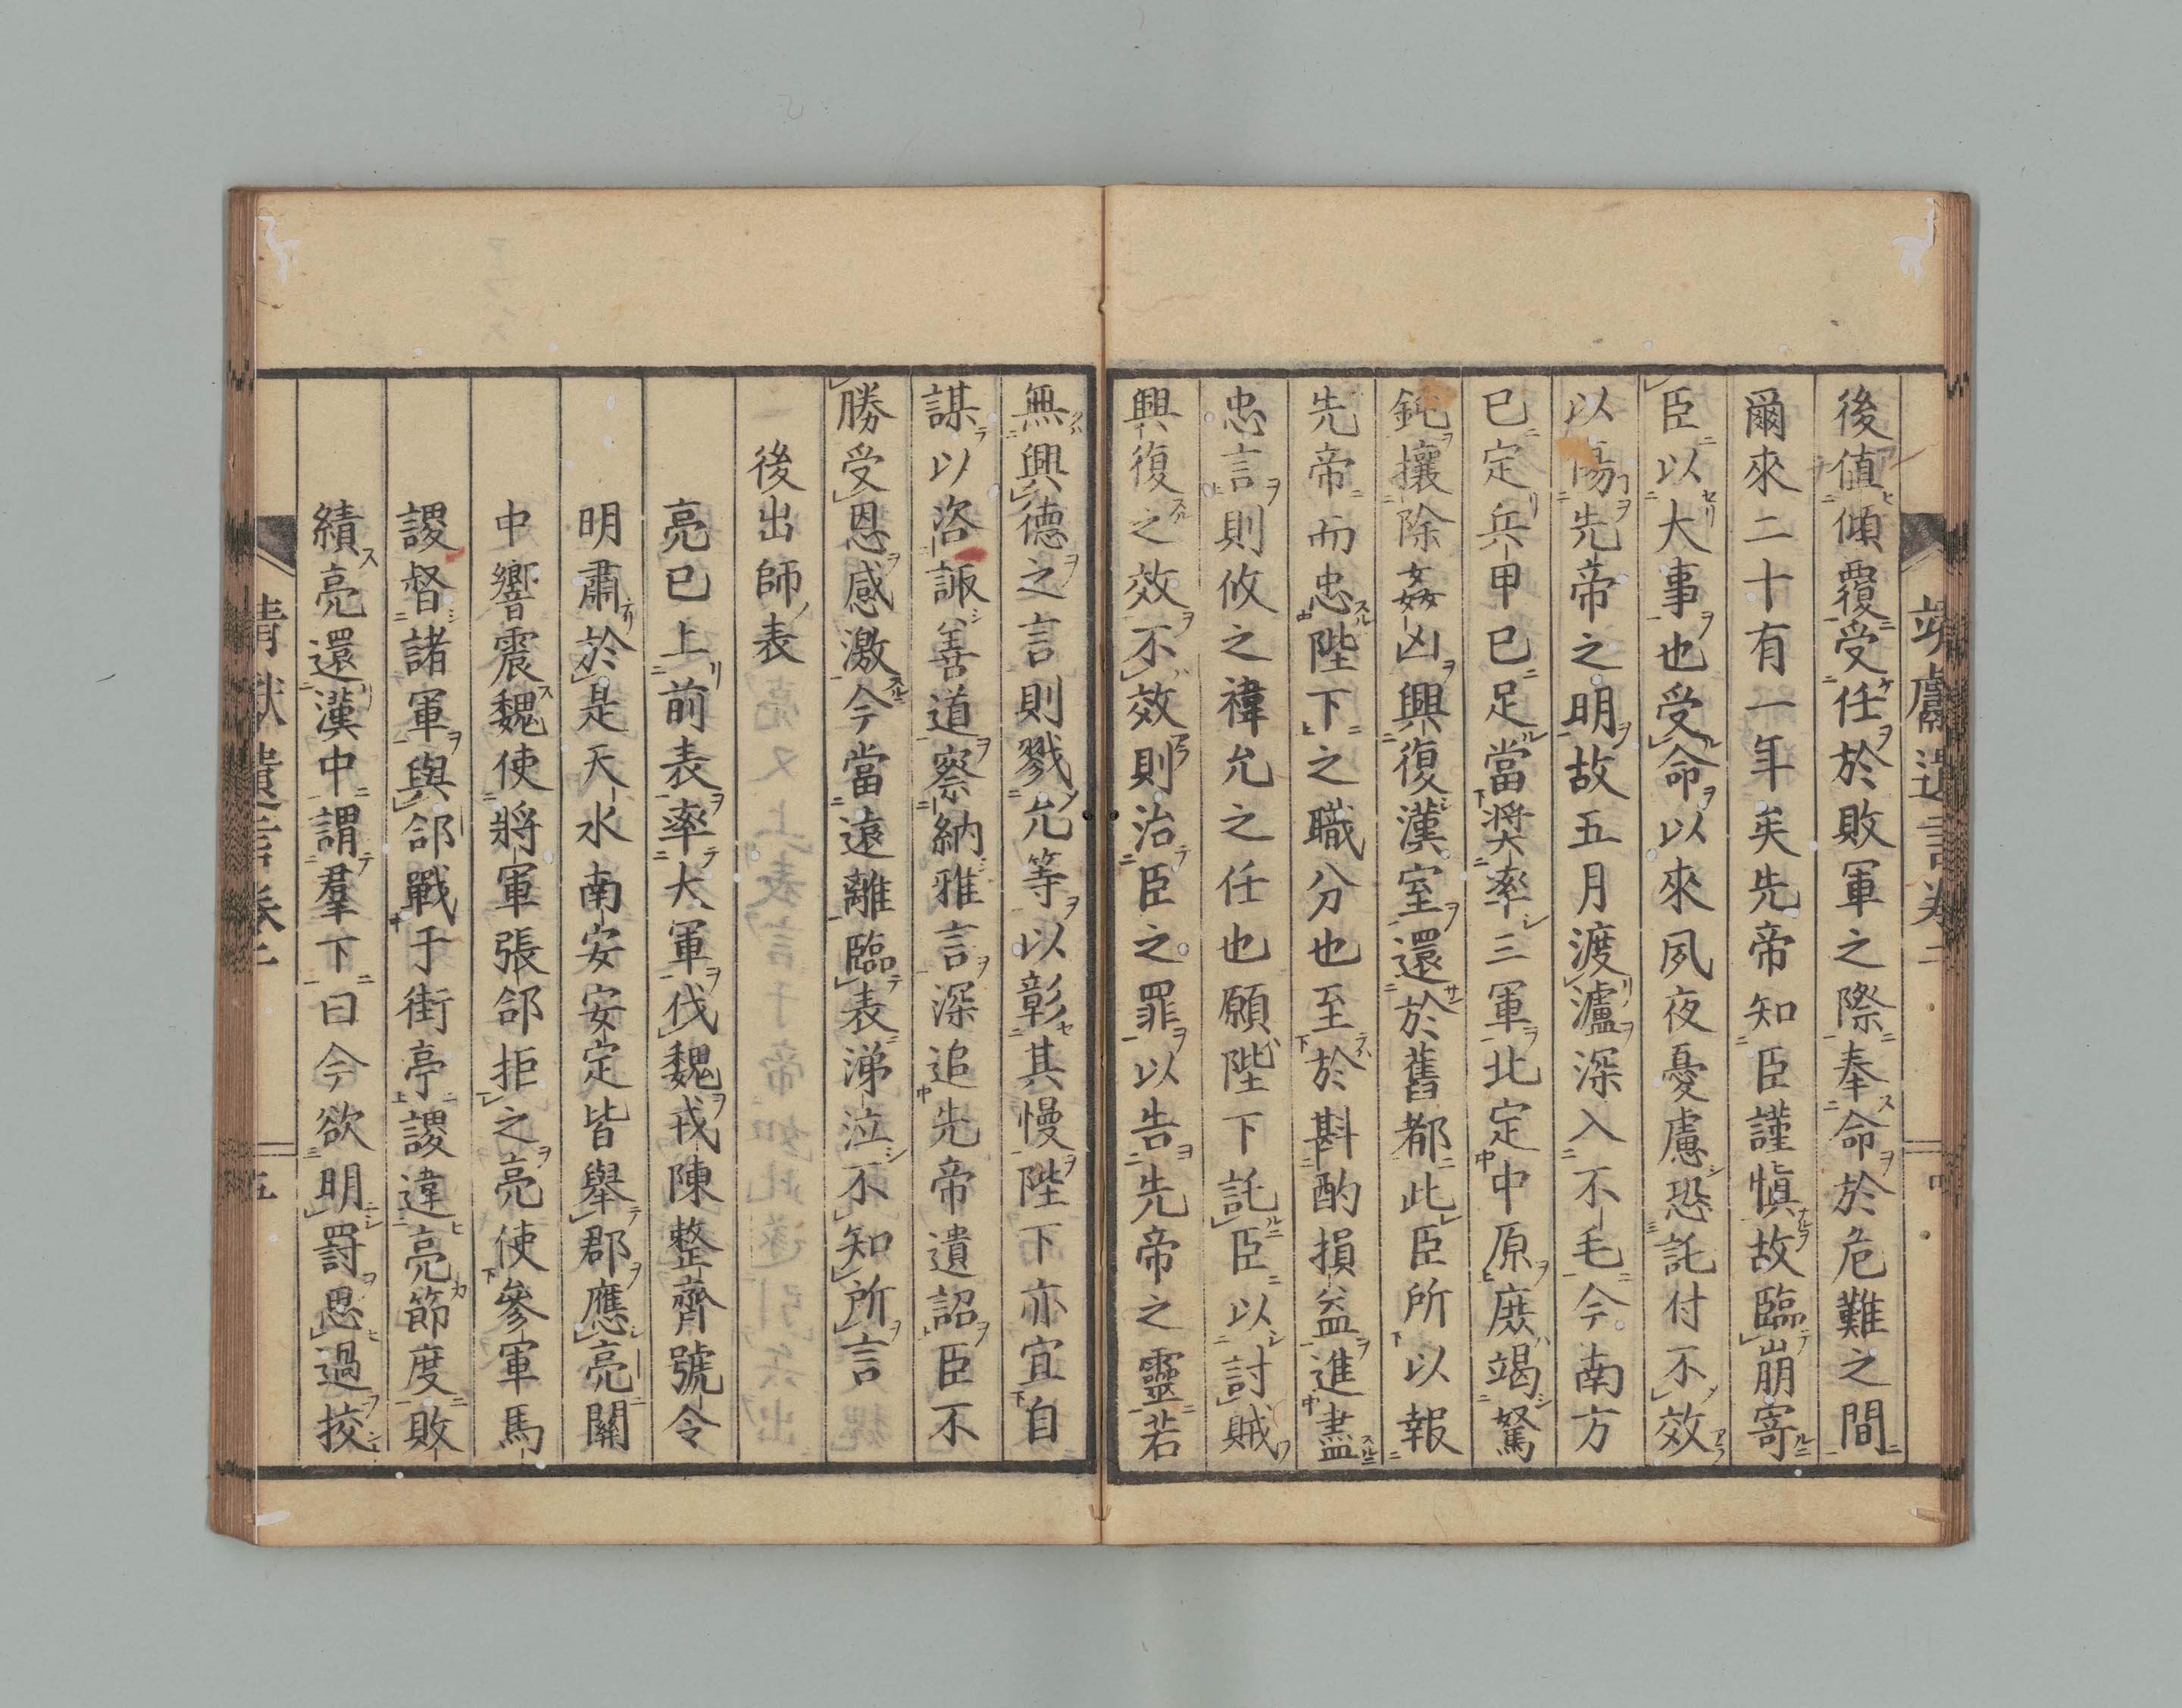 後値傾覆受任於敗軍之際奉命於危難之間
爾來二十有一年矣先帝知臣謹愼故臨崩寄
臣以大事也受命以來夙夜憂慮恐託付不效
以傷先帝之明故五月渡瀘深入不毛今南方
已定兵甲已足當奬率三軍北定中原庶竭駑
鈍攘除姦凶興復漢室還於舊都此臣所以報
先帝而忠陛下之職分也至於斟酌損益進盡
忠言則攸之禕允之任也願陛下託臣以討賊
興復之效不效則治臣之罪以告先帝之靈若
無興德之言則戮允等以彰其慢陛下亦宜自
謀以咨諏善道察納雅言深追先帝遺詔臣不
勝受恩感激今當遠離臨表涕泣不知所言
後出師表
亮已上前表率大軍伐魏戎陳整齊號令
明肅於是天水南安安定皆舉郡應亮關
中響震魏使將軍張郃拒之亮使參軍馬
謖督諸軍與郃戰于街亭謖違亮節度敗
績亮還漢中謂羣下曰今欲明罸思過挍
靖獻遺言卷二
五